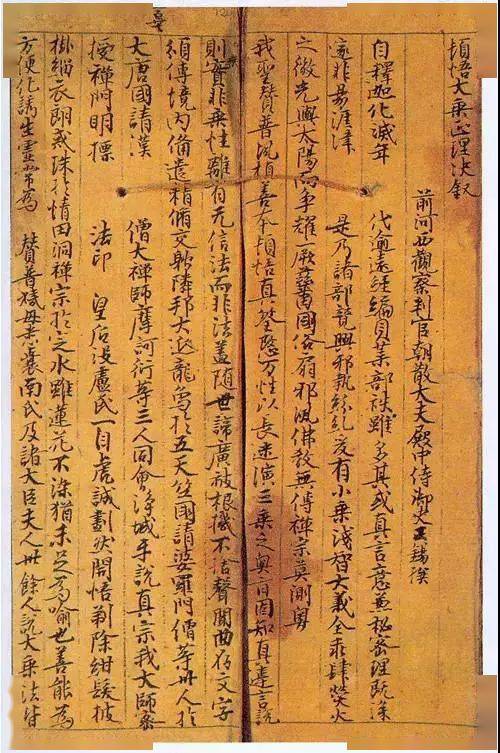 頓悟大乘正理決敘
前河西觀察判官朝散大夫殿中侍御史王錫撰
自釋迦化滅年代逾遠經編貝葉部帙雖多其或真言意兼秘密理既深
邃非易涯津是乃諸部競興邪執紛紜爰有小乘淺智大義全乖肆熒火
之微光與太陽而爭耀厥茲蕃國俗扇邪風佛教無傳禪宗莫測粵
我聖贊普夙植善本頓悟真筌愍万性以長迷演三乘之奧旨固知真違言說
則實非乘性離有无信法而非法蓋隨世諦廣被根機不捨聲聞曲存文字
頒傳境內備遣精脩交聘隣邦大延龍象於五天竺國請婆羅門僧等卅人於
大唐國請漢僧大禪師摩訶衍等三人同會淨城互說真宗我大師密
授禪門明標法印皇后沒盧氏一自虔誠劃然開悟剃除紺髮披
掛緇衣朗戒珠於情田洞禪宗於定水雖蓮花不染猶未足為喻也善能為
方便化誘生靈常為贊普姨母悉囊南氏及諸大臣夫人卅餘人說大乘法皆